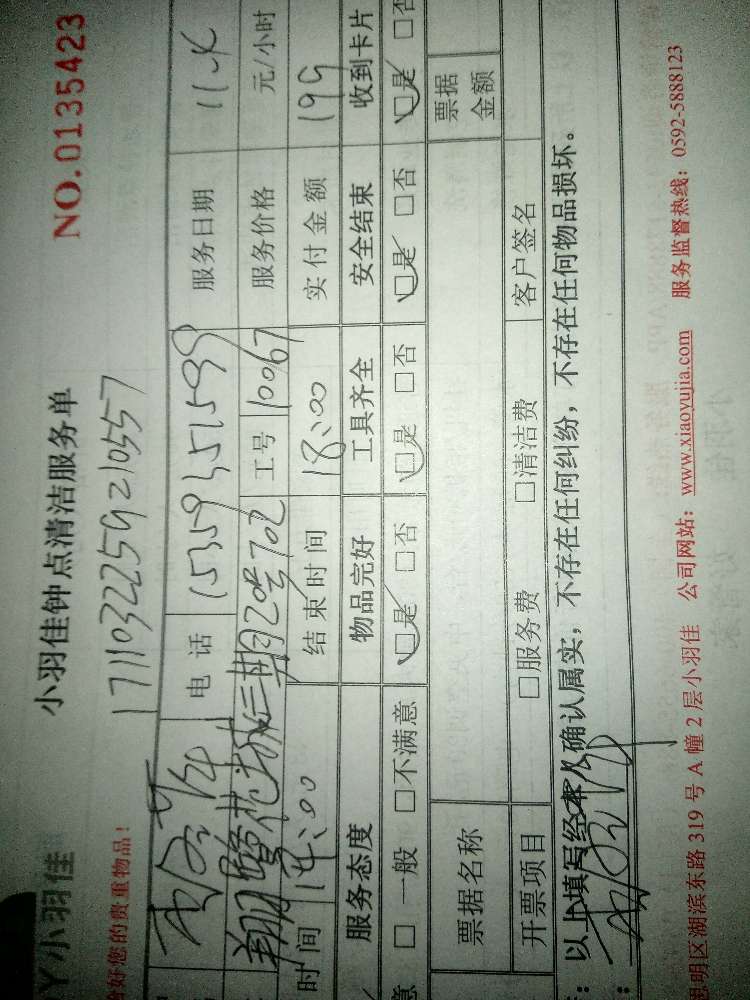 小羽佳 小羽佳钟点清洁服务单 NO.0135423
好您的贵重物品! 17110322592 10557
电 话 15359351599 服务日期 11.4
翔鹭花城三期 2号702 工号 10067 服务价格 元/小时
时间 14:00 结束时间 18:00 实付金额 199
服务态度 物品完好 工具齐全 安全结束 收到卡片
意 □ 一般 □不满意 □是 □否 □是 □否 □是 □否 □是 □否
票据名称 票据金额
开票项目 □服务费 □清洁费 客户签名
:以上填写经本人确认属实,不存在任何纠纷,不存在任何物品损坏。
思明区湖滨东路 319 号 A 幢 2 层小羽佳 公司网站:www.xiaoyujia.com 服务监督热线:0592-5888123